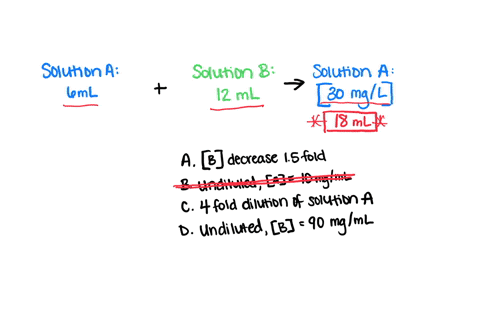 Solution A: Solution B: Solution A:
6mL + 12 mL → [30 mg/L]
18 mL
A. [B] decrease 1.5 fold
B. Undiluted, [B] = 10 mg/mL
C. 4 fold dilution of solution A
D. Undiluted, [B] = 90 mg/mL